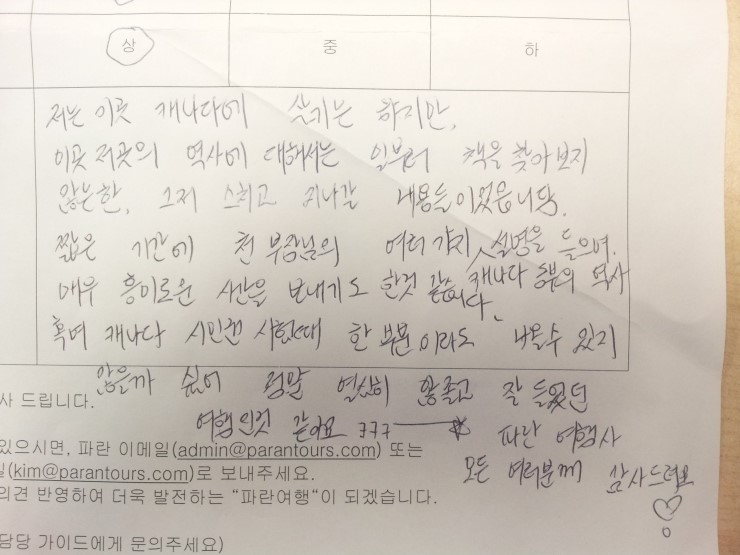 상 중 하
저는 이곳 캐나다에 살기는 하지만,
이곳 저곳의 역사에 대해서는 일부러 책을 찾아보지
않는한, 그저 스치고 지나갈 내용들이었습니다.
짧은 기간에 천 부장님의 여러 가지 설명을 들으며,
캐나다 동부의 역사
매우 흥미로운 시간을 보내기도 한것 같습니다.
혹여 캐나다 시민권 시험때 한 부분이라도 나올수 있지
않을까 싶어 정말 열심히 안졸고 잘 들었던
사 드립니다.
여행인것 같아요 ㅋㅋㅋ
있으시면, 파란 이메일(admin@parantours.com) 또는
파란 여행사
일(kim@parantours.com)로 보내주세요.
모든 여러분께 감사드려요
의견 반영하여 더욱 발전하는 “파란여행“이 되겠습니다.
담당 가이드에게 문의주세요)